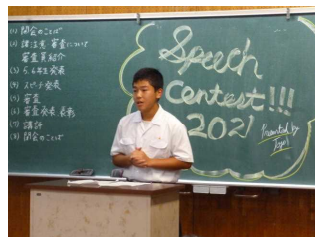 (1) 開会のことば
(2) 諸注意 審査について
審査員紹介
(3) 5.6年生発表
(4) スピーチ発表
(5) 審査
(6) 審査発表 表彰
(7) 講評
(8) 閉会のことば
Speech
Contest!!!
2021
Presented by